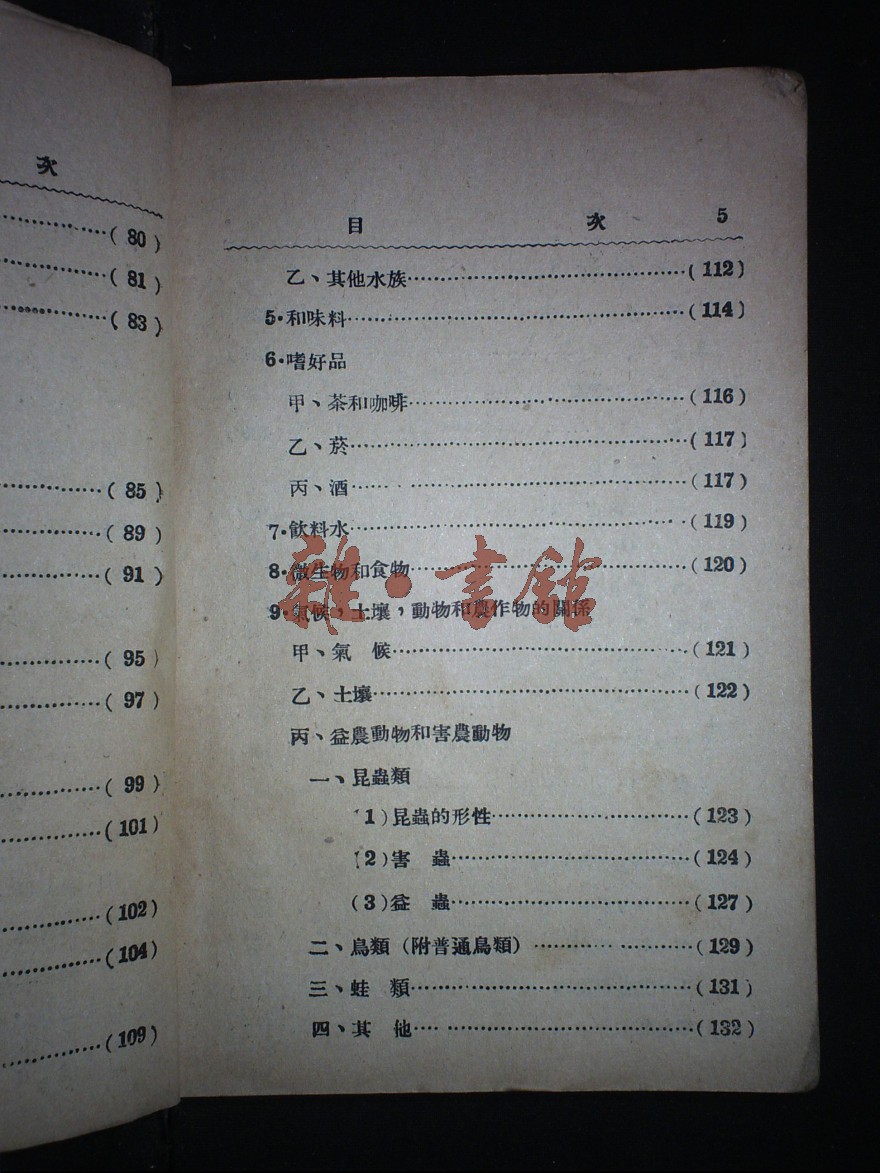 次
(80)
(81)
(83)
(85)
(89)
(91)
(95)
(97)
(99)
(101)
(102)
(104)
(109)
目 次 5
乙、其他水族……(112)
5·和味料……(114)
6·嗜好品
甲、茶和咖啡……(116)
乙、菸……(117)
丙、酒……(117)
7·飲料水……(119)
8·微生物和食物……(120)
9·氣候，土壤，動物和農作物的關係
甲、氣 候……(121)
乙、土壤……(122)
丙、益農動物和害農動物
一、昆蟲類
(1)昆蟲的形性……(123)
(2)害 蟲……(124)
(3)益 蟲……(127)
二、鳥類（附普通鳥類）……(129)
三、蛙 類……(131)
四、其 他……(132)
雜·書館